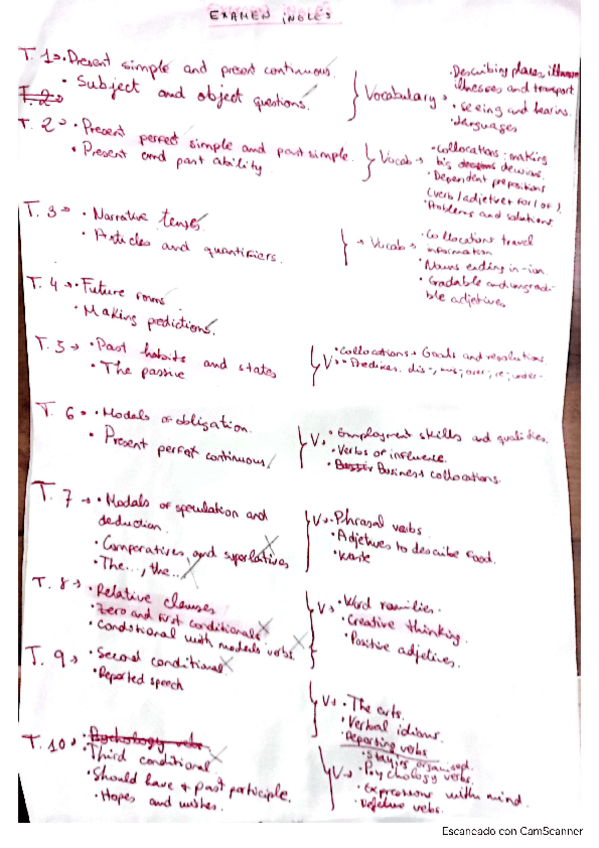 EXAMEN INGLÉS
T. 1 → • Present simple and present continuous.
• Subject and object questions.
Vocabulary →
• Describing places,
illnesses and transport
• Seeing and hearing.
• Languages
T. 2
T. 2 → • Present perfect simple and past simple.
• Present and past ability
Vocab →
• Collocations: making
big decisions.
• Dependent prepositions
(verb/adjetive for/of).
• Problems and solutions.
T. 3 → • Narrative tenses.
• Articles and quantifiers.
→ Vocab →
• Collocations travel
information
• Nouns ending in -ion.
• Gradable and ungrada-
ble adjetives.
T. 4 → • Future forms
• Making predictions.
T. 5 → • Past habits and states
• The passive
V →
• Collocations → Goals and resolutions.
• Predixes. dis-, mis-; over-; re-; under-
T. 6 → • Modals of obligation.
• Present perfect continuous.
V →
• Employment skills and qualities.
• Verbs of influence.
• Business collocations.
T. 7 → • Modals of speculation and
deduction.
• Comparatives and superlatives
• The..., the...
V →
• Phrasal verbs.
• Adjetives to describe food.
• Waste
T. 8 → • Relative clauses
• Zero and first conditionals
• Conditional with modals verbs.
V →
• Word families.
• Creative thinking.
• Positive adjetives.
T. 9 → • Second conditional
• Reported speech
V → • The arts.
• Verbal idioms.
• Reporting verbs
• Staying organised.
T. 10 → • Psychology verbs
• Third conditional
• Should have + past participle.
• Hopes and wishes.
V → • Psychology verbs.
• Expressions with mind.
Escaneado con CamScanner